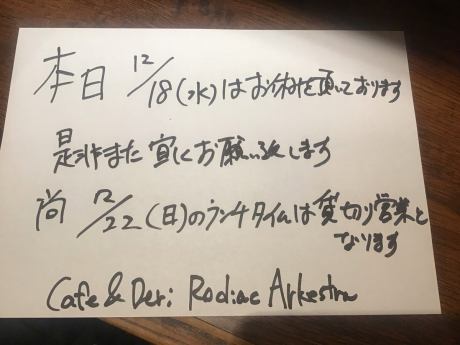 本日 12/18(水)はお休みを頂いております
是非また宜しくお願い致します
尚 12/22(日)のランチタイムは貸切り営業と
なります
Cafe & Deri Rodiac Arkestra